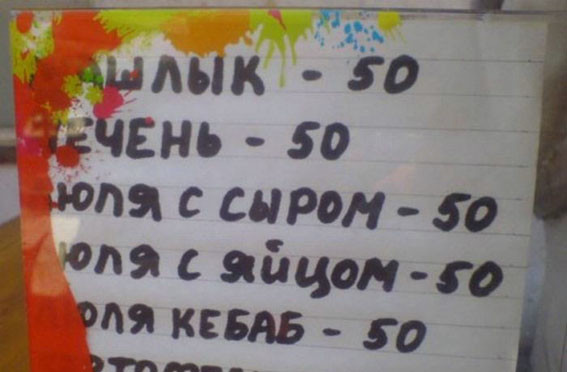 ШЛЫК - 50
ЕЧЕНЬ - 50
ЮЛЯ С СЫРОМ - 50
ЮЛЯ С ЯЙЦОМ - 50
ЮЛЯ КЕБАБ - 50